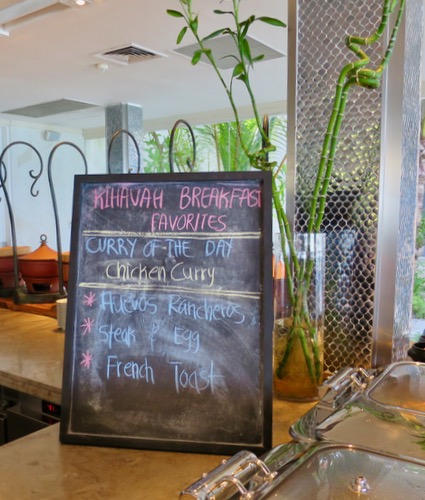 KIHAVAH BREAKFAST
FAVORITES
CURRY OF THE DAY
Chicken Curry
* Huevos Rancheros
* Steak & Egg
* French Toast